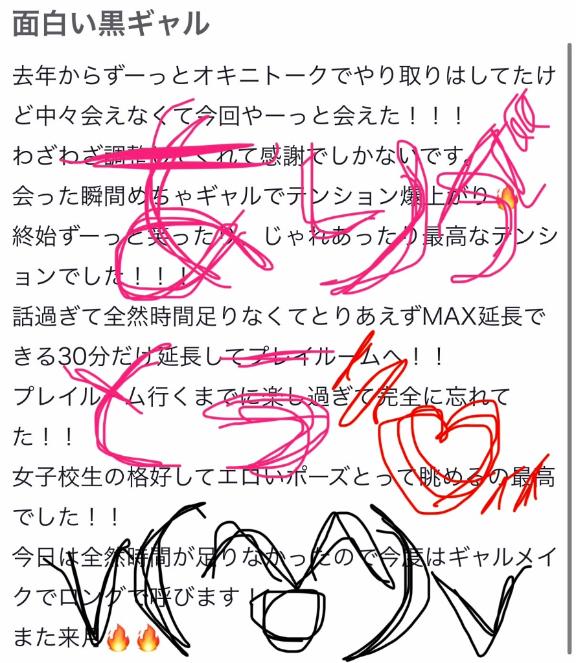 面白い黒ギャル
去年からずーっとオキニトークでやり取りはしてたけ
ど中々会えなくて今回やーっと会えた！！！
わざわざ調整してくれて感謝でしかないです。
会った瞬間めちゃギャルでテンション爆上がり🔥
終始ずーっと笑ったり、じゃれあったり最高なテンシ
ョンでした！！！
話過ぎて全然時間足りなくてとりあえずMAX延長で
きる30分だけ延長してプレイルームへ！！
プレイルーム行くまでに楽し過ぎて完全に忘れて
た！！
女子校生の格好してエロいポーズとって眺めるの最高
でした！！
今日は全然時間が足りなかったので今度はギャルメイ
クでロングで呼びます！
また来月🔥🔥
ありがとう